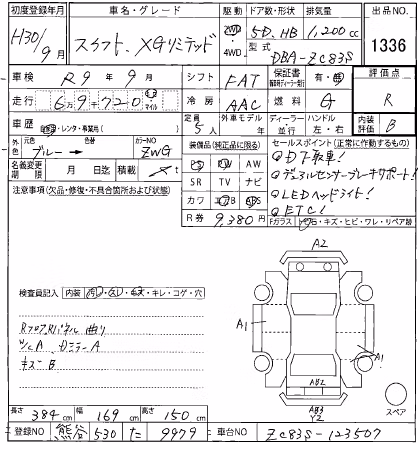 初度登録年月 車名・グレード 駆動 ドア数・形状 排気量 出品NO
H30/9月 スイフト、XGリミテッド 2WD・4WD 5D. HB 1,200cc 1336
型式 DBA-ZC83S
車検 R9年9月 シフト FAT 保証書 有・無 評価点
走行 6万9千720 マイル 冷房 AAC 燃料 G R
車歴 自家・レンタ・事業用( ) 定員 5人 外車モデル 年 ディーラー 並行 ハンドル 左・右 内装評価 B
外色 元色 ブルー → 色替 カラーNO ZWG 装備品(純正品に限る) セールスポイント(正常に作動するもの)
名義変更期限 月 日迄 積載 t PS PW AW
①D下取車!
注意事項(欠品・修復・不具合箇所および状態) SR TV ナビ
②デュアルセンサーブレーキサポート!
カワ エアB ABS
③LEDヘッドライト!
R券 9,380円
④ETC!
Fガラス
キズ・ヒビ・ワレ・リペア跡
A2
検査員記入 内装
キレ・コゲ・穴
A1
A1
RフロアRパネル曲り
W/CA DミラーA
キズB
AB2
AB3
Y2
スペア
長さ 384cm 幅 169cm 高さ 150cm
登録NO 熊谷 530 た 9979 車台NO ZC83S-123507